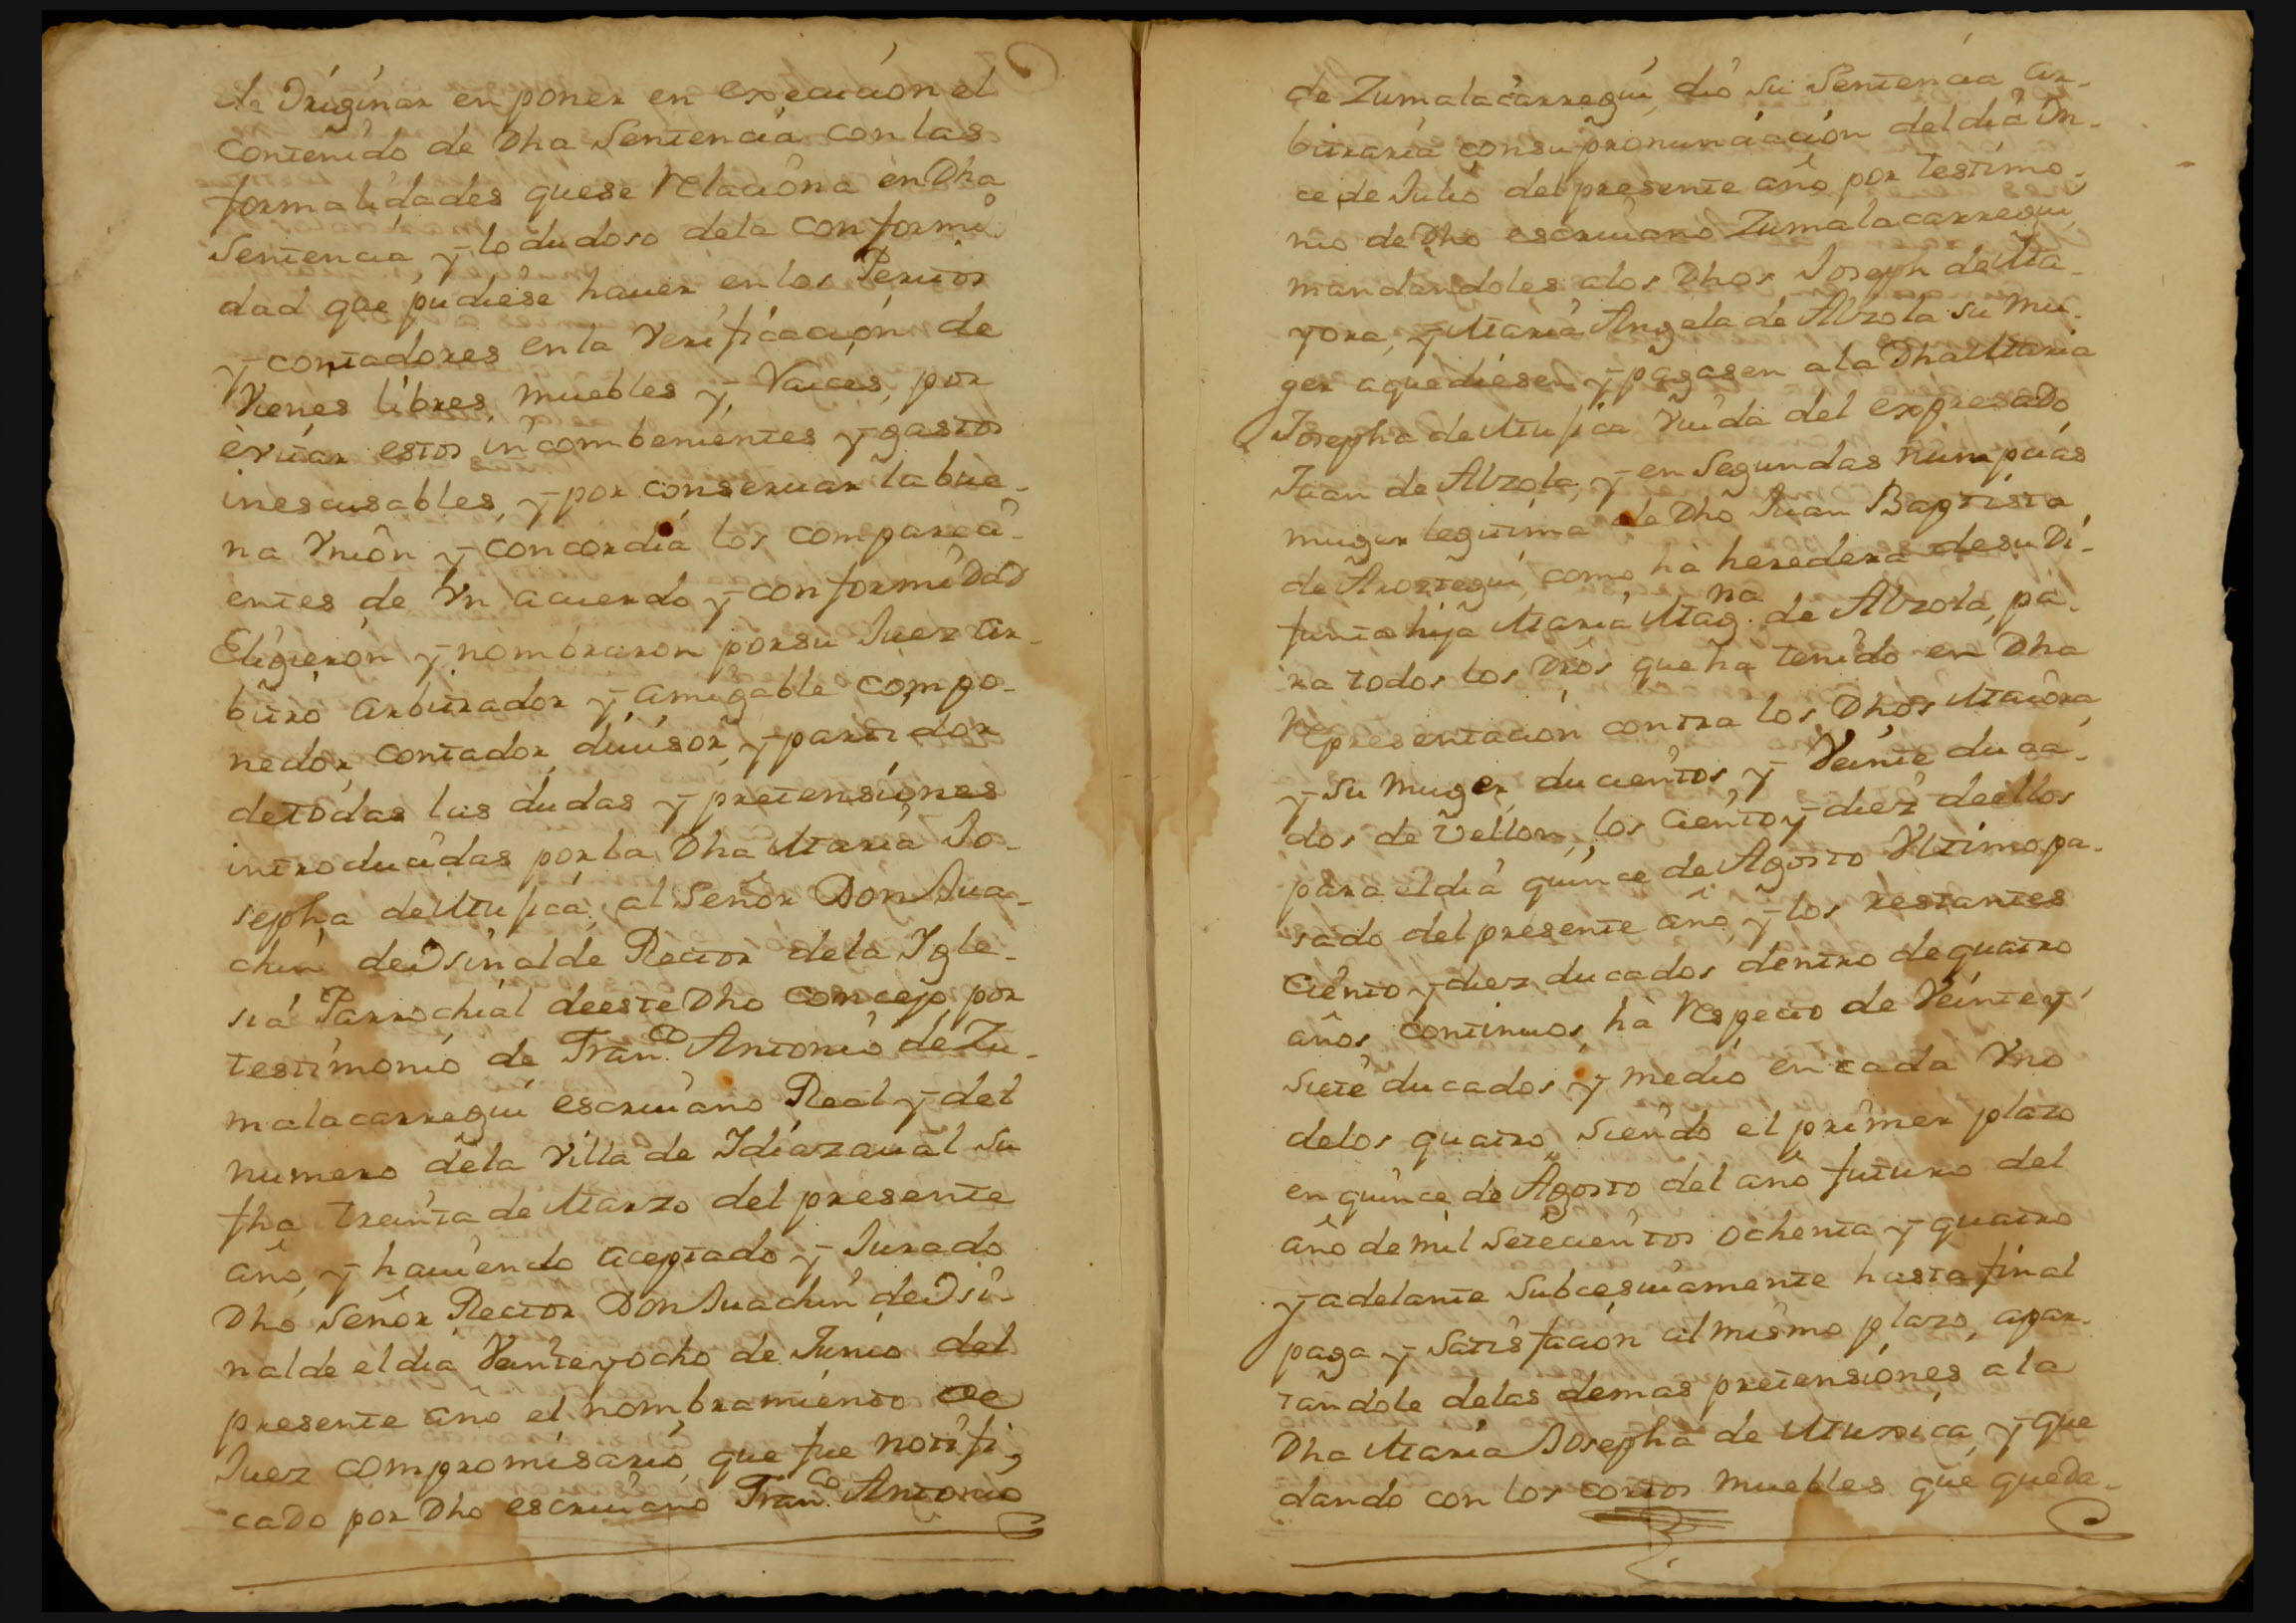 de Originar en poner en execucion el
Contenido de Dha Sentencia con las
formalidades quese Relaciona en Dha
Sentencia, y lo dudoso dela conformi
dad que pudiese hauer en los Peritos
y contadores en la Verificacion de
Vienes libres, muebles y, Raices, por
evitar estos incombenientes y gastos
inescusables, y por conseruar la bue-
na Vnion y concordia los compareci-
entes de Vn acuerdo y conformidad
Eligieron y nombraron por su Juez ar-
bitro arbitrador y amigable compo-
nedor, contador, diuisor, y partidor
de todas las dudas y pretensiones
introducidas por la Dha Maria Jo-
sepha de Mujica, al Señor Don Jua-
chin de Osinalde Rector dela Igle-
sia Parrochial deeste Dho Concejo, por
testimonio de Fran.co Antonio de Zu-
malacarregui escriuano Real y del
numero dela Villa de Idiazaual su
fha treinta de Marzo del presente
año, y hauiendo aceptado y Jurado
Dho Señor Rector Don Juachin de Osi-
nalde el dia Veinte y ocho de Junio del
presente año el nombramiento de
Juez compromisario, que fue notifi-
cado por Dho escriuano Fran.co Antonio
de Zumalacarregui, dio su Sentencia ar-
bitraria con su pronunciacion del dia On-
ce de Julio del presente año por testimo-
nio de Dho escriuano Zumalacarregui,
mandandoles alos Dhos Joseph de Ma-
yora, y Maria Angela de Alzola su Mu-
ger aquediesen y pagasen a la Dha Maria
Josepha de Mujica Viuda del expresado
Juan de Alzola, y en Segundas numpcias
muger legitima de Dho Juan Baptista
de Aioztegui, como hà heredera de su Di-
funta hija Maria Mag.na de Alzola, pa-
ra todos los Dros que ha tenido en Dha
Representacion contra los Dhos Maiora,
y su muger, ducientos, y Veinte duca-
dos de Vellon, los Ciento y diez deellos
para el dia quince de Agosto Vltimo pa-
sado del presente año, y los restantes
Ciento y diez ducados dentro de quatro
años continuos, hà Respecto de Veinte y
siete ducados y medio en cada Vno
delos quatro, siendo el primer plazo
en quince de Agosto del año futuro del
año de mil Setecientos ochenta y quatro
y adelante Subcesiuamente hasta final
paga y Satisfacion al mismo plazo, apar-
tandole delas demas pretensiones a la
Dha Maria Josepha de Muxica, y que
dando con los cortos muebles que queda-